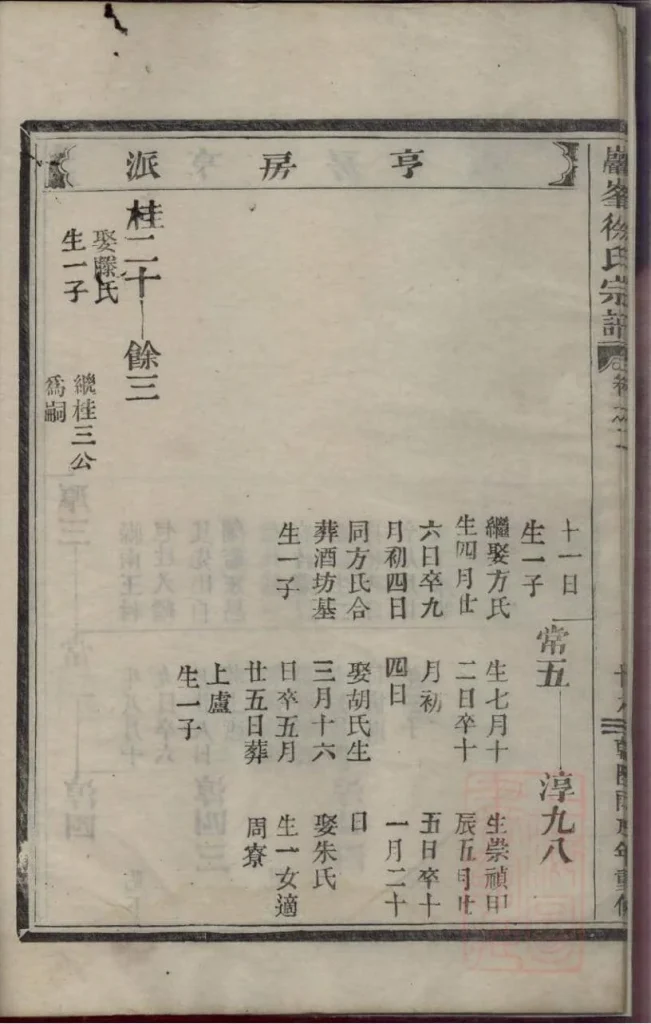 巖峯徐氏宗譜
亨房派
十一日
生一子
繼娶方氏
生四月廿
六日卒九
月初四日
同方氏合
葬酒坊基
生一子
常五
生七月十
二日卒十
月初
四日
娶胡氏生
三月十六
日卒五月
廿五日葬
上盧
生一子
淳九八
生崇禎甲
辰五月廿
五日卒十
一月二十
日
娶朱氏
生一女適
周寮
桂二十
娶滕氏
生一子
餘三
繼桂三公
爲嗣